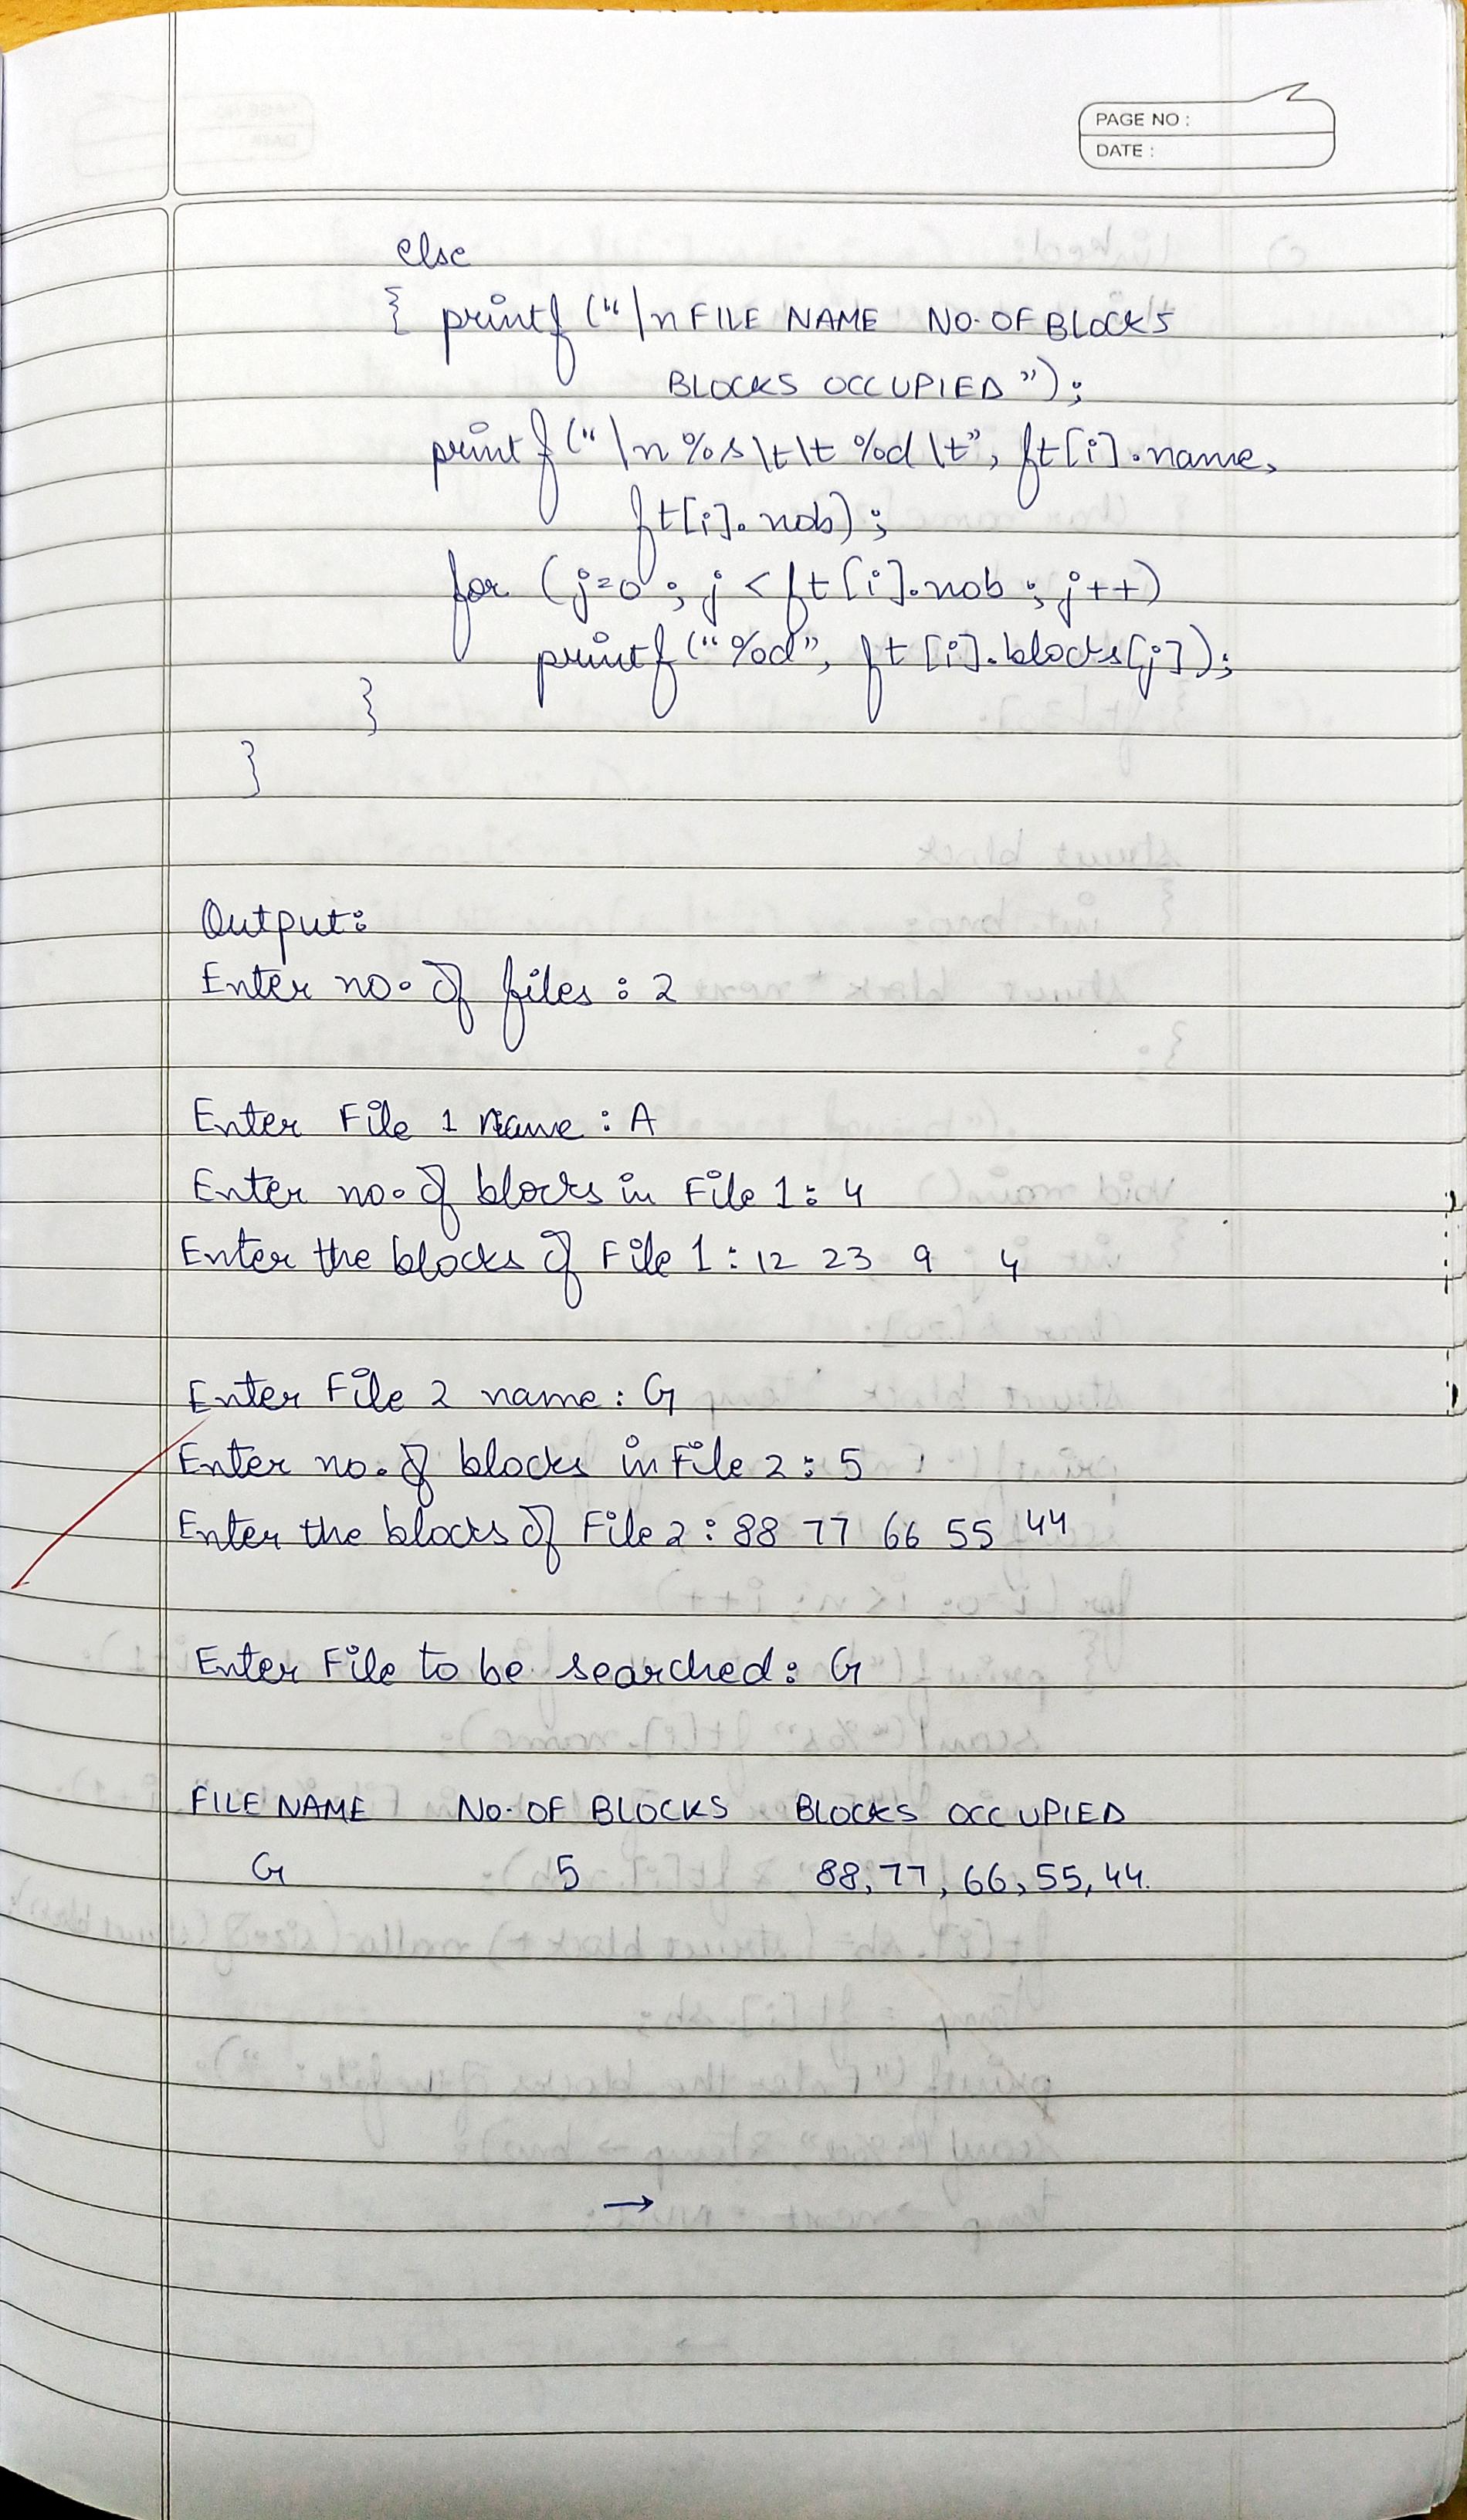 PAGE NO :
DATE :
else
{ printf ("\n FILE NAME NO. OF BLOCKS
BLOCKS OCCUPIED");
printf ("\n %s \t\t %d \t", ft[i].name,
ft[i].nob);
for (j=0 ; j < ft[i].nob ; j++)
printf ("%d", ft[i].blocks[j]);
}
}
Output:
Enter no. of files : 2
Enter File 1 name : A
Enter no. of blocks in File 1 : 4
Enter the blocks of File 1 : 12 23 9 4
Enter File 2 name : G
Enter no. of blocks in File 2 : 5
Enter the blocks of File 2 : 88 77 66 55 44
Enter File to be searched : G
FILE NAME NO. OF BLOCKS BLOCKS OCCUPIED
G 5 88, 77, 66, 55, 44.
→